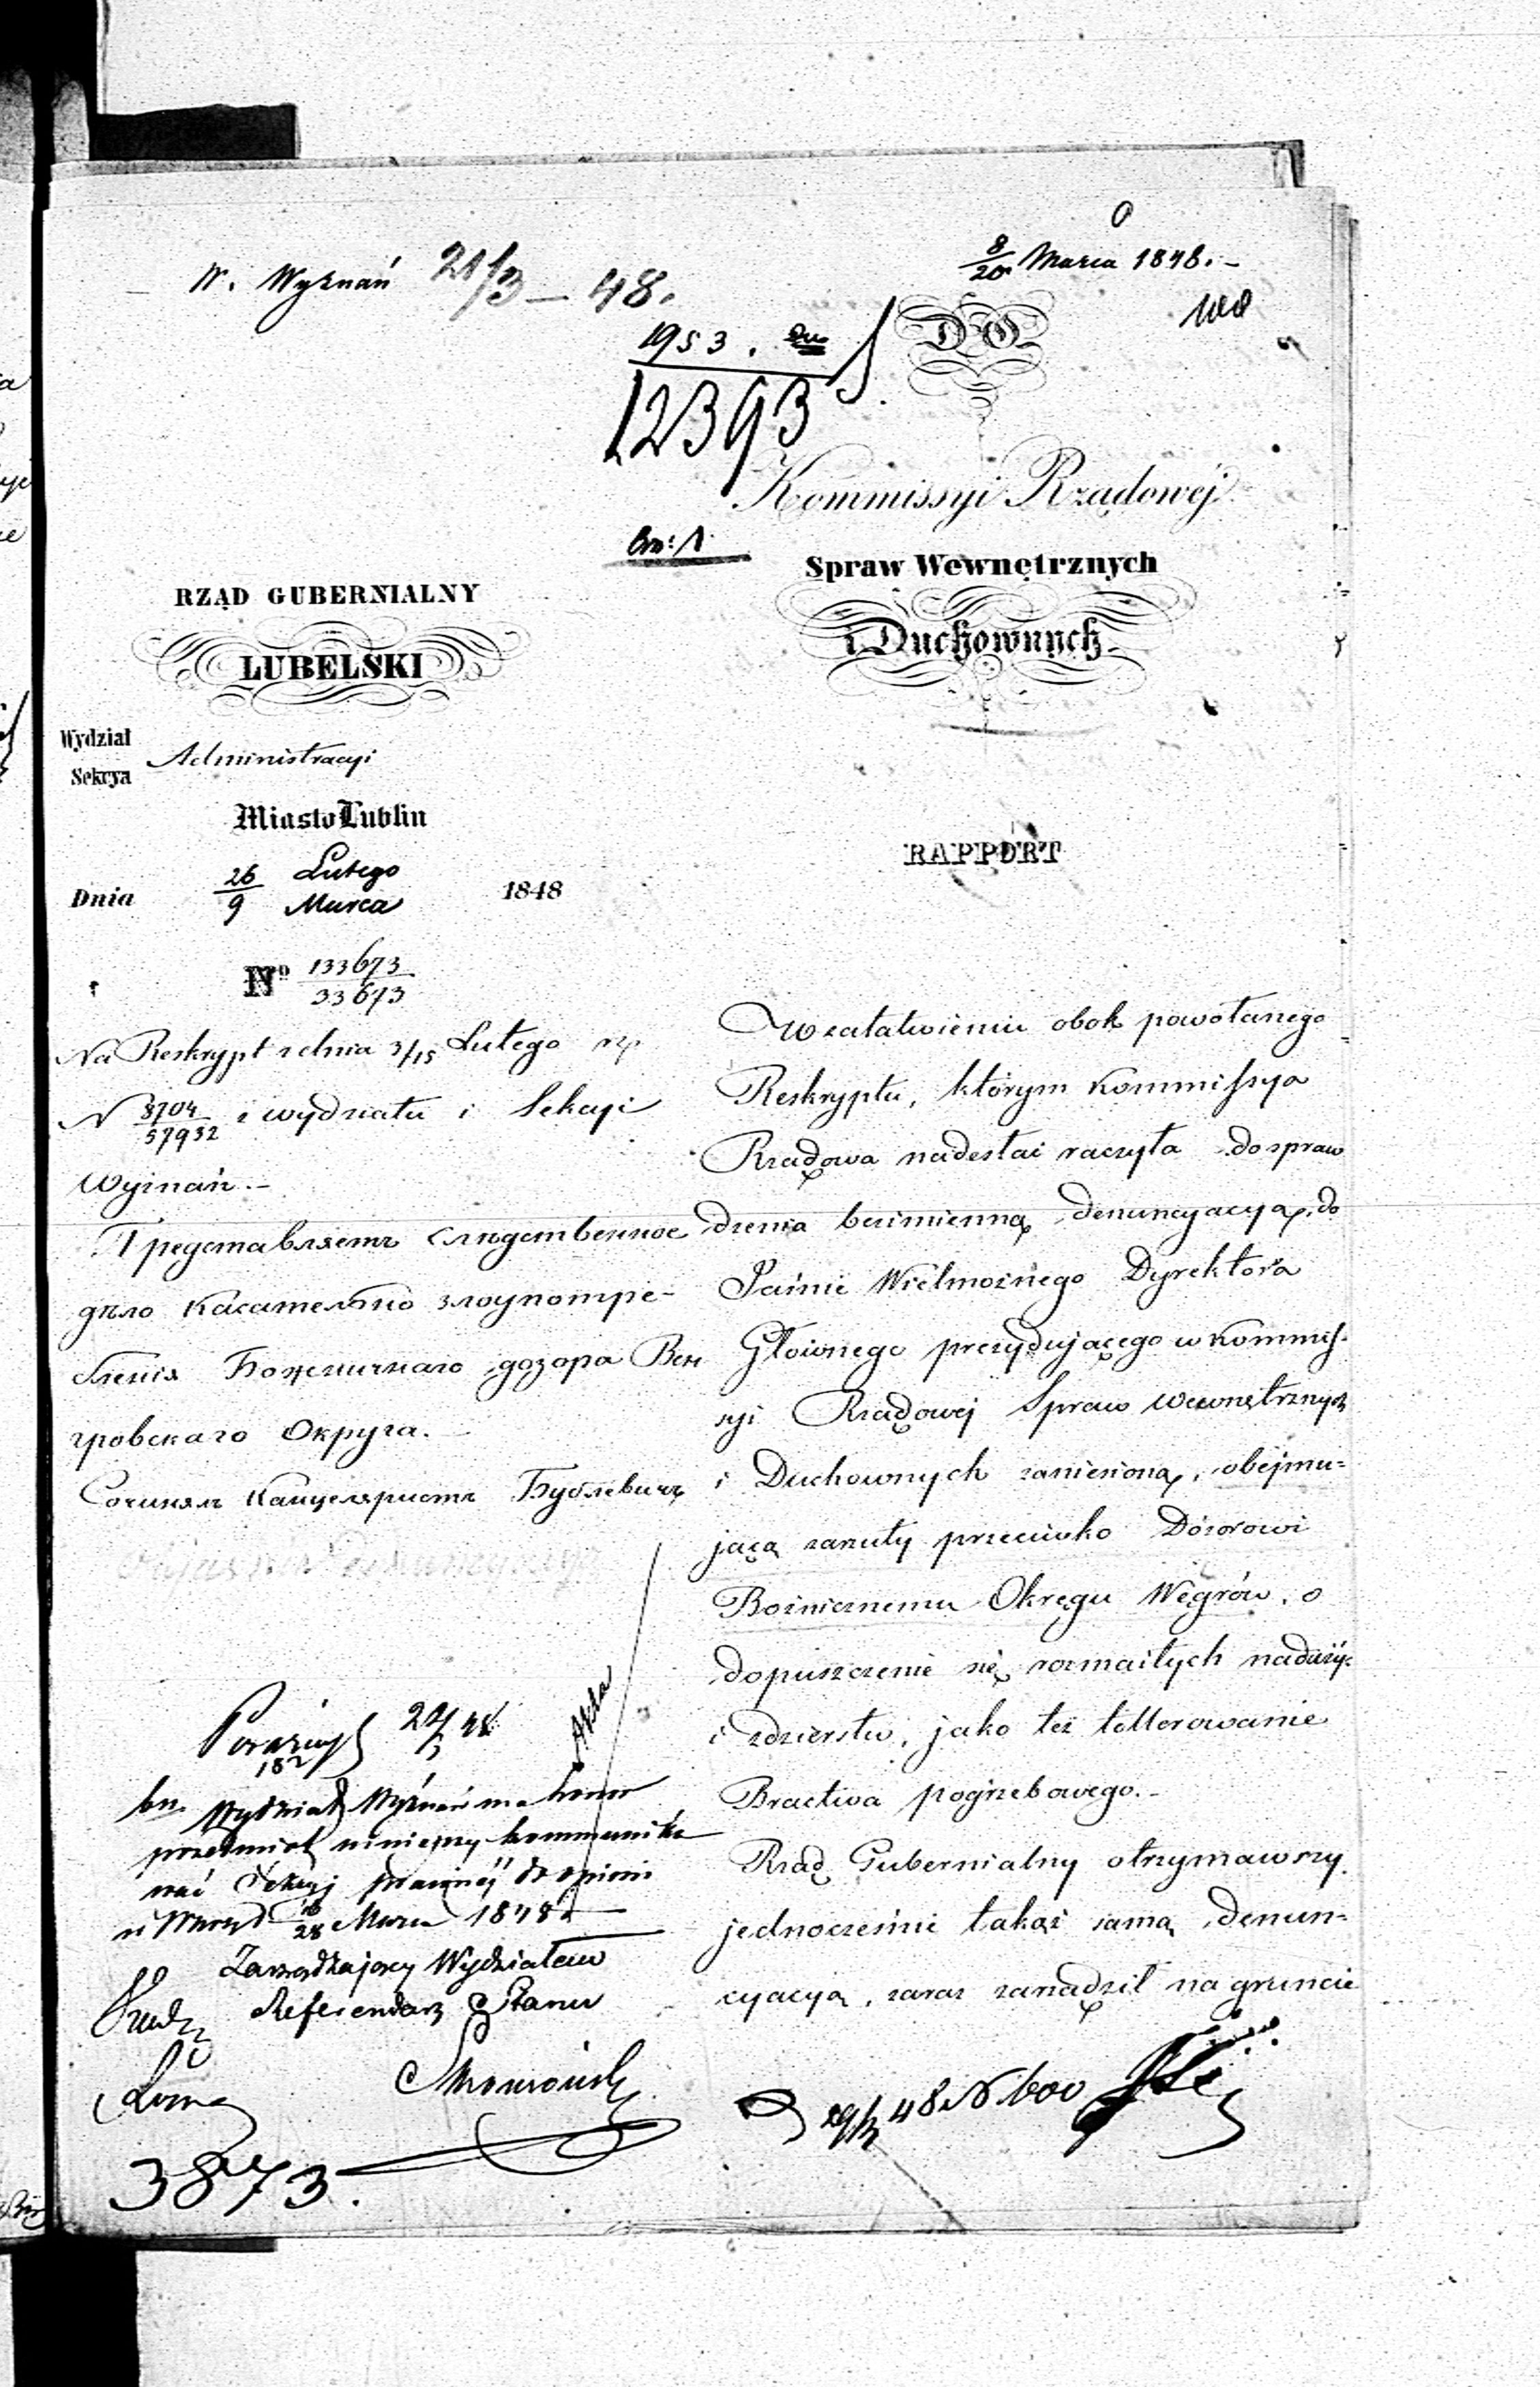 W. Wyznań 21/3 – 48.
8/20 Marca 1848. –
1953.
12393
DO
Kommissyi Rządowéj
Spraw Wewnętrznych
i Duchownych
RZĄD GUBERNIALNY
LUBELSKI
Wydział Administracyi
Sekcya
Miasto Lublin
Dnia 26 Lutego / 9 Marca 1848
No 133673 / 33673
RAPPORT
Na Reskrypt z dnia 3/15 Lutego rz.
N 8704 / 57932 z wydziału i Sekcyi
Wyznań. –
Представляетъ слѣдственное
дѣло касательно злоупотре-
бленія Божничнаго дозора Вен
гровскаго Округа.
Сочинялъ Канцеляристъ
W załatwieniu obok powołanego
Reskryptu, którym Kommissya
Rządowa nadesłać raczyła do spraw
dzenia bezimienną denuncyacyą, do
Jaśnie Wielmożnego Dyrektora
Głównego prezydującego w Kommis-
syi Rządowej Spraw Wewnętrznych
i Duchownych zaniesioną, obejmu-
jącą zarzuty przeciwko Dozorowi
Bożnicznemu Okręgu Węgrów, o
dopuszczenie się rozmaitych naduży:
i zdzierstw, jako też tollerowanie
Bractwa pogrzebowego. –
Rząd Gubernialny otrzymawszy
jednocześnie takąż samą denun-
cyacyą, zaraz zarządził na gruncie
Akta
Wydział Wyznań ma honor
przedmiot niniejszy kommuniko
wać Sekcyj prawnéj do opinii
28 Marca 1848
Zarządzający Wydziałem
Referendarz Stanu
3873.